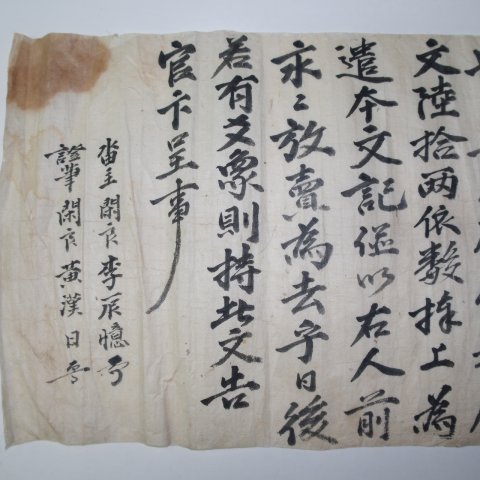 文陸拾兩依數捧上爲
遣本文記並以右人前
永〻放賣爲去乎日後
若有爻象則持此文告
官卞呈事
畓主閑良李辰憶
證筆閑良黃漢日